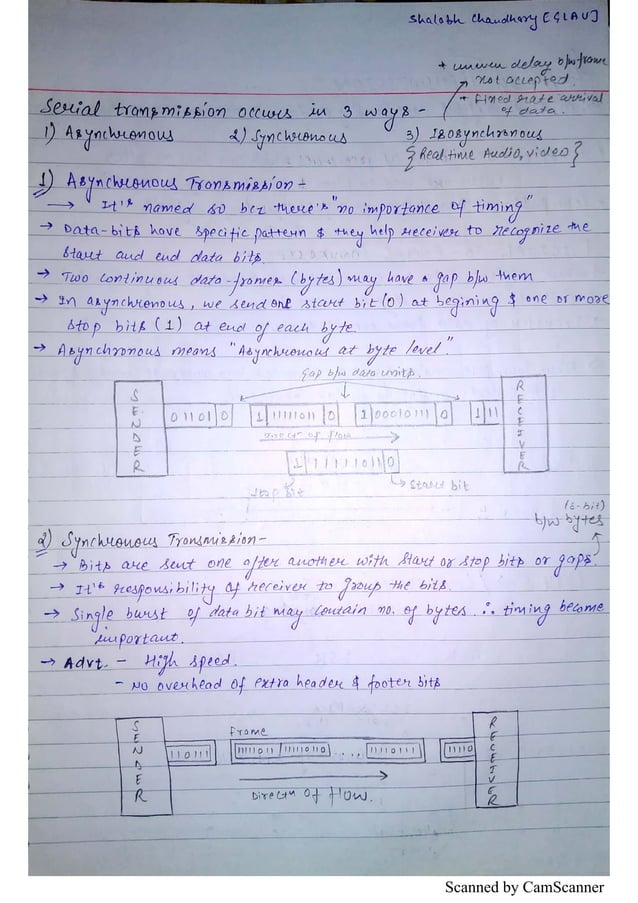 Shalobh Chaudhary [GLAU]
* uneven delay b/w frame
not accepted.
* Fixed rate arrival
of data.
Serial transmission occurs in 3 ways -
1) Asynchronous 2) Synchronous 3) Isosynchronous
{Real time Audio, video}
1) Asynchronous Transmission -
→ It's named so bcz there's "no importance of timing"
→ Data-bits have specific pattern & they help receiver to recognize the
start and end data bits.
→ Two continuous data-frames (bytes) may have a gap b/w them
→ In asynchronous, we send one start bit (0) at begining & one or more
stop bits (1) at end of each byte.
→ Asynchronous means "Asynchronous at byte level".
gap b/w data units.
SENDER
01101 0 1 11111011 0 1 00010111 0 1 11
RECEIVER
Directn of flow
1 11111011 0
Stop bit Start bit
(8-bit)
b/w bytes
2) Synchronous Transmission -
→ Bits are sent one after another with start or stop bits or gaps.
→ It's responsibility of receiver to group the bits.
→ Single burst of data bit may contain no. of bytes ∴ timing become
important.
→ Advt. - High speed.
- No overhead of extra header & footer bits
SENDER
Frame
110111 11111011 11110110 ..... 11110111 11110
RECEIVER
Directn of flow.
Scanned by CamScanner